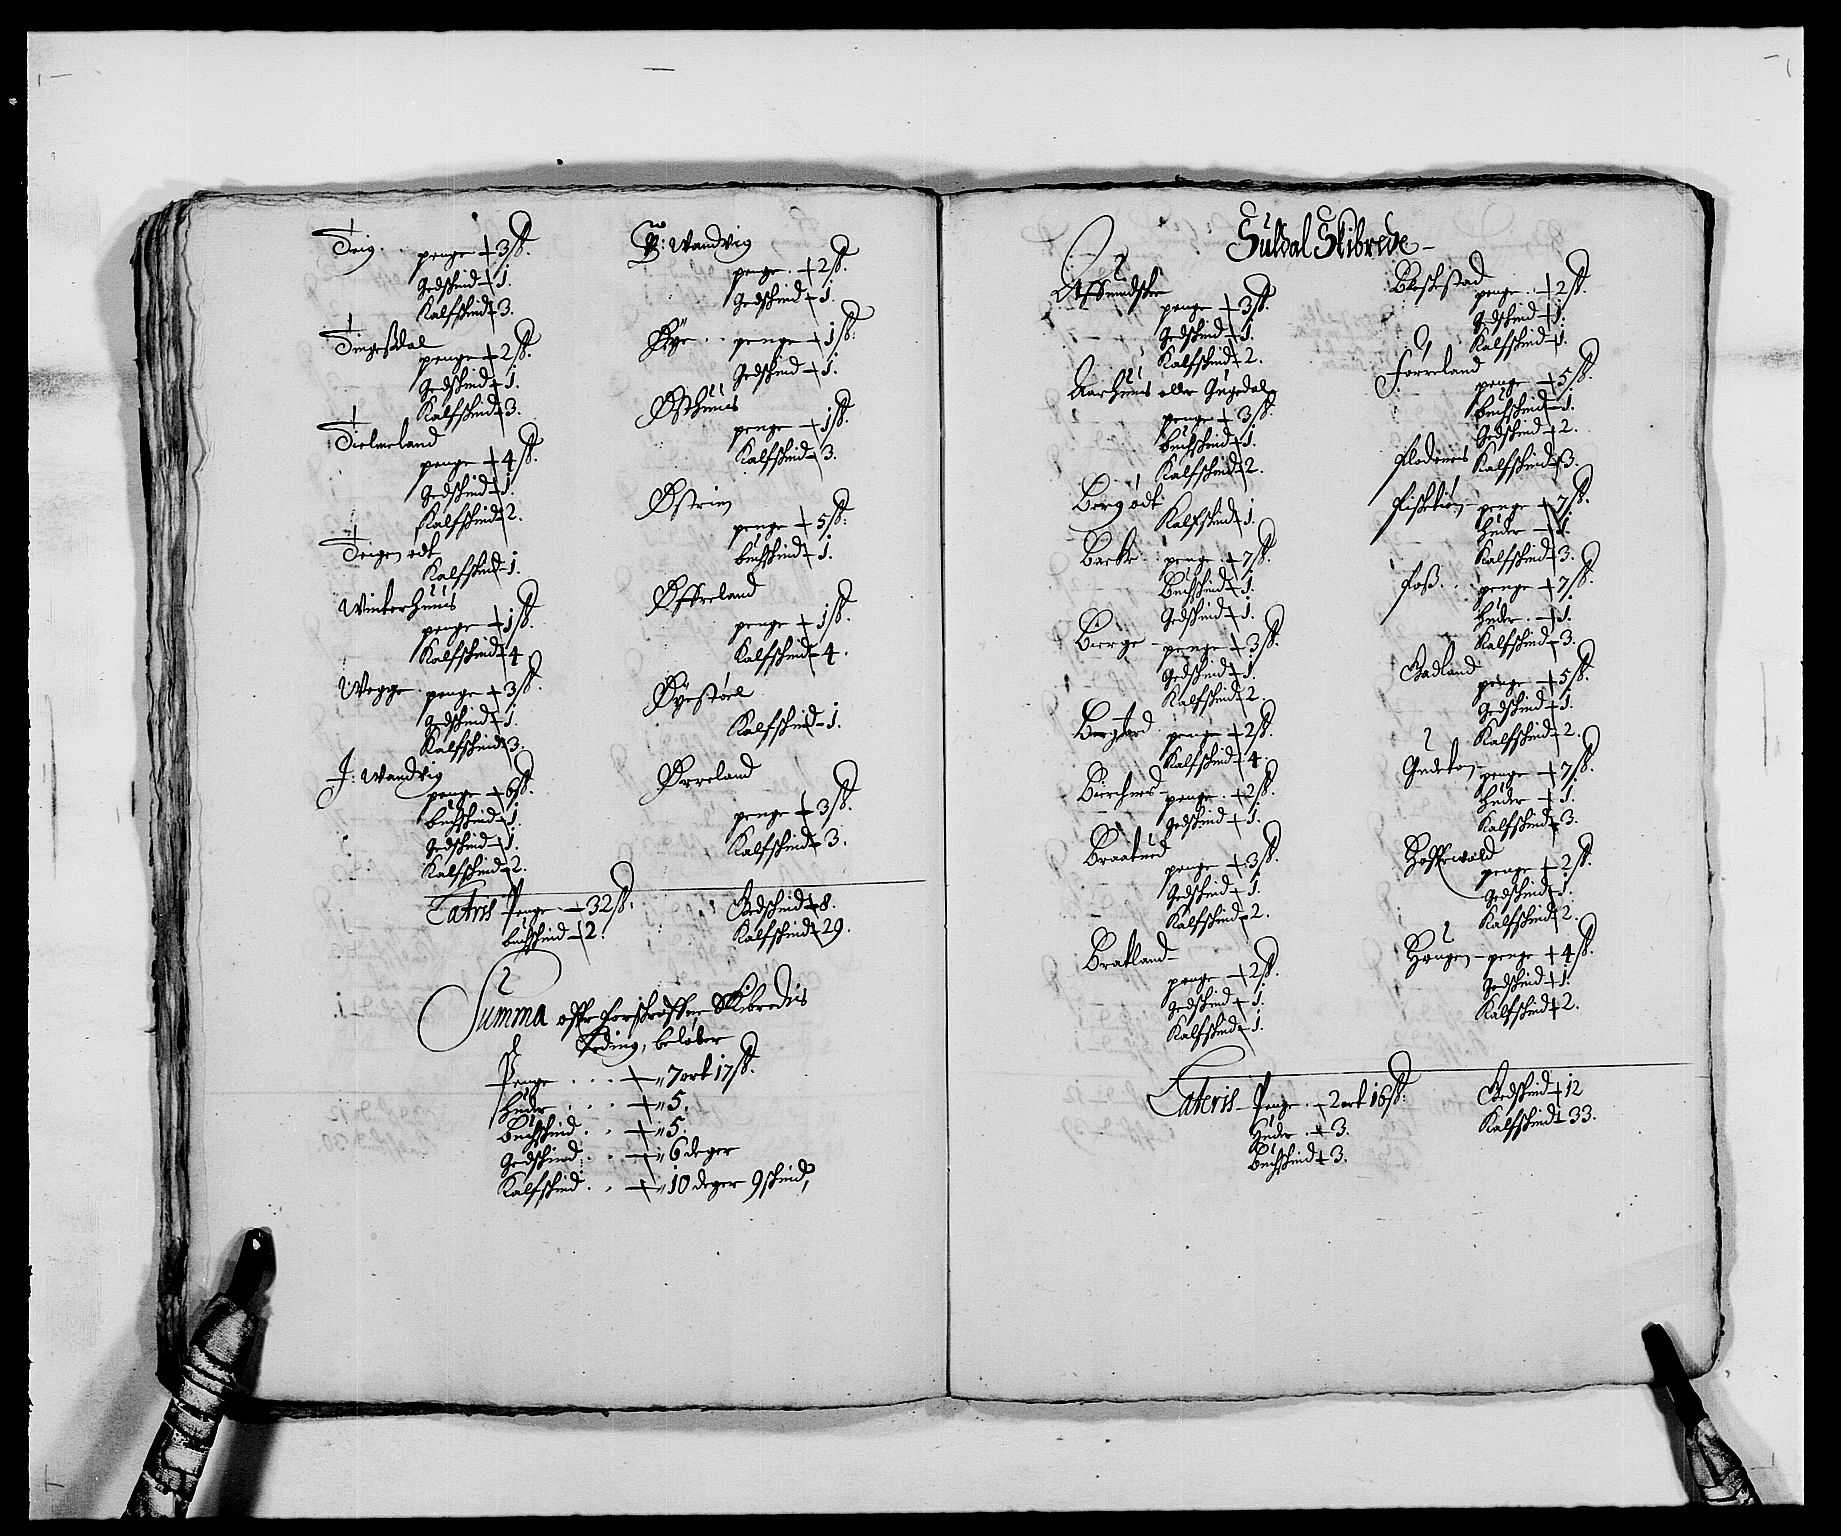 Teig. penge 3 sk.
Gedskind 1.
Kalfskind 3.
Tengesdal
penge 2 sk.
Gedskind 1.
Kalfskind 3.
Tielmeland
penge 4 sk.
Gedskind 1.
Kalfskind 2.
Teigen ødt
Kalfskind 1.
Winterhuus
penge 1 sk.
Kalfskind 4
Wegge penge 3 sk.
Gedskind 1.
Kalfskind 3.
J: Wandvig
penge 6 sk.
buchskind 1.
Gedskind 1.
Kalfskind 2.
Y: Wandvig
penge 2 sk.
Gedskind 1.
Øye penge 1 sk.
Gedskind 1.
Østhuus
penge 1 sk.
Kalfskind 3.
Østrim
penge 5 sk.
buchskind 1.
Øffreland
penge 1 sk.
Kalfskind 4.
Øyestøel
Kalfskind 1.
Ørreland
penge 3 sk.
Kalfskind 3.
Lateris Penge 32 sk.
buchskind 2.
Gedskind 8.
Kalfskind 29.
Summa offr forskrefne Skibredis
beløber
Penge 7 ort 17 sk.
Huder 5.
Buchskind 5.
Gedskind 6 deger
Kalfskind 10 deger 9 skind,
Suldal Skibrede
penge 3 sk.
Gedskind 1.
Kalfskind 2.
Aarhuus eller
penge 3 sk.
buchskind 1.
Kalfskind 2.
Berg ødt
Kalfskind 1.
Backe penge 7 sk.
Buchskind 1.
Gedskind 1.
Bierge penge 3 sk.
Gedskind 1.
Kalfskind 2.
penge 2 sk.
Kalfskind 4.
penge 2 sk.
Gedskind 1.
Braatued
penge 3 sk.
Gedskind 1.
Kalfskind 2.
Bratland
penge 2 sk.
Gedskind 1.
Kalfskind 1.
Bleskestad
penge 2 sk.
Gedskind 1.
Kalfskind 1.
Førreland
penge 5 sk.
buchskind 1.
Gedskind 2.
Kalfskind 3.
penge 7 sk.
Huder 1.
Kalfskind 3.
Foss penge 7 sk.
Huder 1.
Kalfskind 3.
Gadland
penge 5 sk.
Gedskind 1.
Kalfskind 2.
penge 7 sk.
Huder 1.
Kalfskind 3.
penge 2 sk.
Gedskind 1.
Kalfskind 2.
Haugen penge 4 sk.
Gedskind 1.
Kalfskind 2.
Lateris Penge 2 ort 16 sk.
Huder 3.
Buchskind 3.
Gedskind 12
Kalfskind 33.